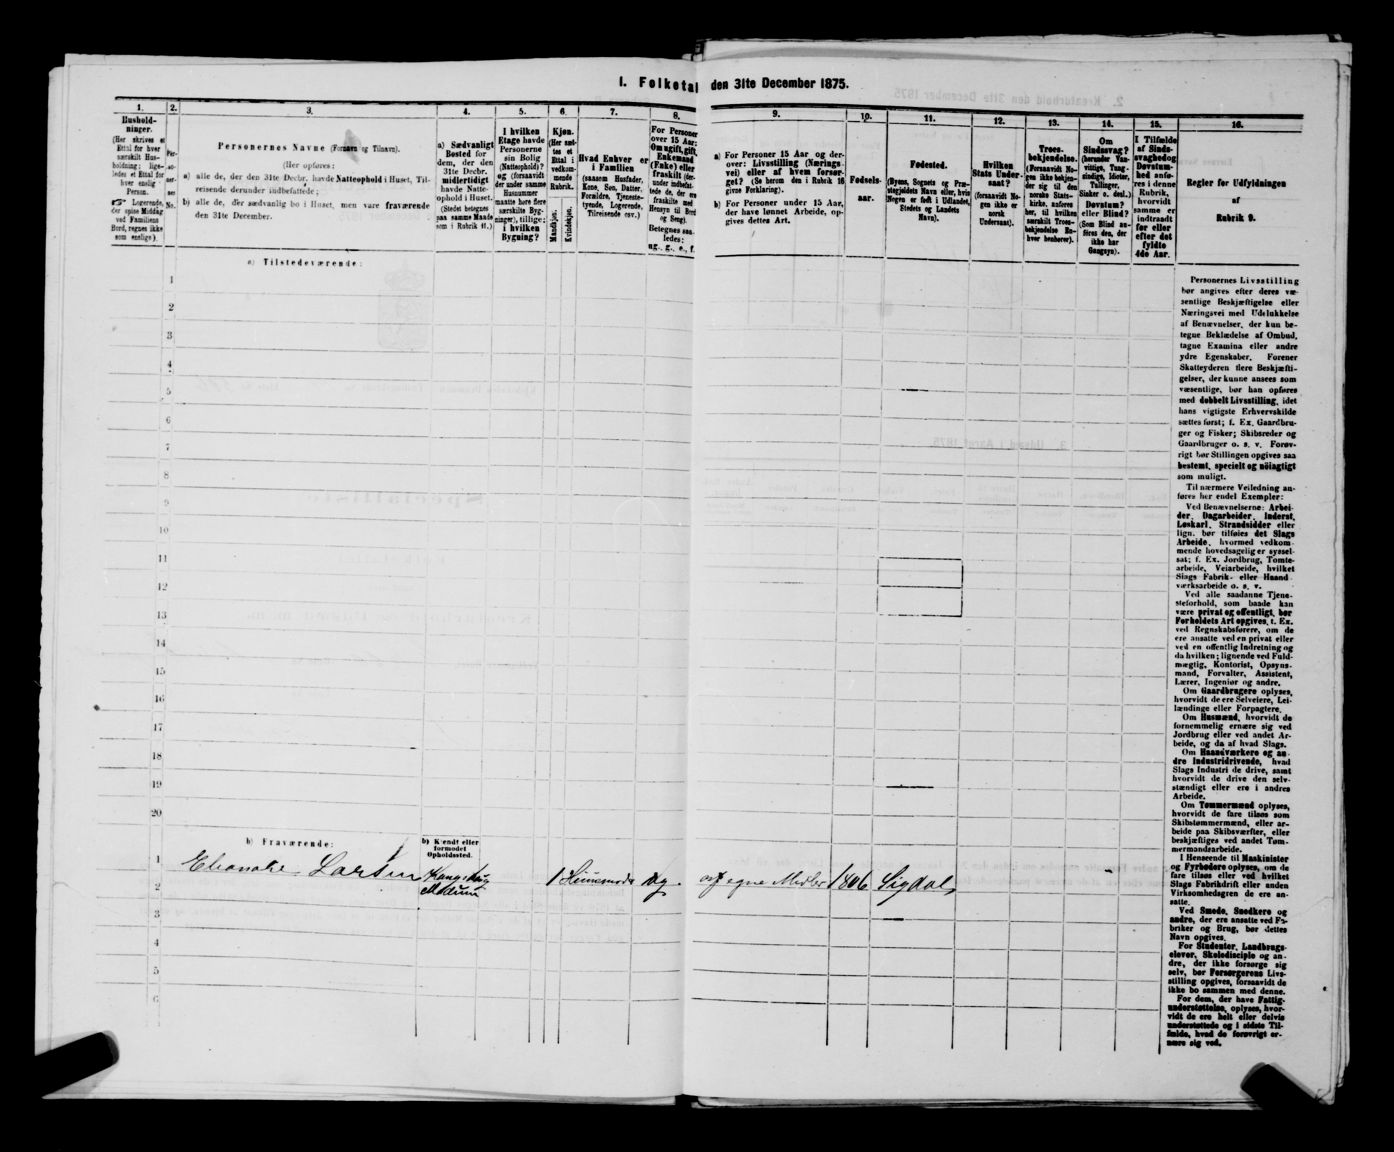 1. Folketal den 31te December 1875.
1.
2.
3.
4.
5.
6.
7.
8.
9.
10.
11.
12.
13.
14.
15.
16.
Hushold-
ninger.
(Her skrives et
Ettal for hver
særskilt Hus-
holdning; lige-
ledes et Ettal for
hver enslig
Person.
☞ Logerende,
der spise Middag
ved Familiens
Bord, regnes ikke
som enslige).
Per-
so-
ner-
nes
No.
Personernes Navne (Fornavn og Tilnavn).
(Her opføres:
a) alle de, der den 31te Decbr. havde Natteophold i Huset, Til-
reisende derunder indbefattede;
b) alle de, der sædvanlig bo i Huset, men vare fraværende
den 31te December.
a) Sædvanligt
Bosted for
dem, der den
31te Decbr.
midlertidigt
havde Natte-
ophold i Huset.
(Stedet betegnes
paa samme Maade
som i Rubrik 11.)
I hvilken
Etage havde
Personerne
sin Bolig
(Natteophold)?
(og forsaavidt
der under samme
Husnummer
maatte høre flere
særskilte Byg-
ninger), tillige:
i hvilken
Bygning?
Kjøn.
(Her sæt-
tes et
Ettal i
vedkom-
mende
Rubrik.
Mandkjøn.
Kvindekjøn.
Hvad Enhver er
i Familien
(saasom Husfader,
Kone, Søn, Datter,
Forældre, Tjeneste-
tyende, Logerende,
Tilreisende osv.)
For Personer
over 15 Aar:
Om ugift, gift,
Enkemand
(Enke) eller
fraskilt (der-
under indbefat-
tede de, der ere
fraskilte med
Hensyn til Bord
og Seng).
Betegnes saa-
ledes:
ug., g., e., f.
a) For Personer 15 Aar og der-
over: Livsstilling (Nærings-
vei) eller af hvem forsør-
get? (Se herom den i Rubrik 16
givne Forklaring).
b) For Personer under 15 Aar,
der have lønnet Arbeide, op-
gives dettes Art.
Fødsels-
aar.
Fødested.
(Byens, Sognets og Præ-
stegjeldets Navn eller, hvis
Nogen er født i Udlandet,
Stedets og Landets
Navn).
Hvilken
Stats Under-
saat?
(forsaavidt No-
gen ikke er
norsk
Undersaat).
Troes-
bekjendelse.
(Forsaavidt No-
gen ikke bekjen-
der sig til den
norske Stats-
kirke, anføres
her, til hvilken
særskilt Troes-
bekjendelse En-
hver henhører).
Om
Sindssvag?
(herunder Van-
vittige, Tung-
sindige, Idioter,
Tullinger,
Sinker o. desl.)
Døvstum?
eller Blind?
(Som Blind an-
føres den, der
ikke har
Gangsyn).
I Tilfælde
af Sinds-
svaghed og
Døvstum-
hed anfø-
res i denne
Rubrik,
hvorvidt
samme er
indtraadt
før eller
efter det
fyldte
4de Aar.
Regler for Udfyldningen
af
Rubrik 9.
a) Tilstedeværende:
1
2
3
4
5
6
7
8
9
10
11
12
13
14
15
16
17
18
19
20
b) Fraværende:
b) Kjendt eller
formodet
Opholdssted.
1
Eleonore Larsen Kongsberg 1 Huusmoder ug. af egne Midler 1806 Sigdal
2
3
4
5
6
Personernes Livsstilling
bør angives efter deres væ-
sentlige Beskjæftigelse eller
Næringsvei med Udelukkelse
af Benævnelser, der kun be-
tegne Beklædelse af Ombud,
tagne Examina eller andre
ydre Egenskaber. Forener
Skatteyderen flere Beskjæfti-
gelser, der kunne ansees som
væsentlige, bør han opføres
med dobbelt Livsstilling, idet
hans vigtigste Erhvervskilde
sættes først; f. Ex. Gaardbru-
ger og Fisker; Skibsreder og
Gaardbruger o. s. v. Forøv-
rigt bør Stillingen opgives saa
bestemt, specielt og nöiagtigt
som muligt.
Til nærmere Veiledning an-
føres her endel Exempler:
Ved Benævnelserne: Arbei-
der, Dagarbeider, Inderst,
Løskarl, Strandsidder eller
lign. bør tilføies det Slags
Arbeide, hvormed vedkom-
mende hovedsagelig er syssel-
sat; f. Ex. Jordbrug, Tomte-
arbeide, Veiarbeide, hvilket
Slags Fabrik- eller Haand-
værksarbeide o. s. v.
Ved alle saadanne Tjene-
steforhold, som baade kan
være privat og offentligt, bør
Forholdets Art opgives, t. Ex.
ved Regnskabsførere, om de
ere ansatte ved en privat eller
ved en offentlig Indretning og
da hvilken; lignende ved Fuld-
mægtig, Kontorist, Opsyns-
mand, Forvalter, Assistent,
Lærer, Ingeniør og andre.
Om Gaardbrugere oplyses,
hvorvidt de ere Selveiere, Lei-
lændinge eller Forpagtere.
Om Husmænd, hvorvidt de
fornemmelig ernære sig ved
Jordbrug eller ved andet Ar-
beide, og da af hvad Slags.
Om Haandværkere og an-
dre Industridrivende, hvad
Slags Industri de drive, samt
hvorvidt de drive den selv-
stændigt eller ere i andres
Arbeide.
Om Tømmermænd oplyses,
hvorvidt de fare tilsøs som
Skibstømmermænd, eller ar-
beide paa Skibsværfter, eller
beskjæftiges ved andet Tøm-
mermandsarbeide.
I Henseende til Maskinister
og Fyrbødere oplyses, om de
fare tilsøs eller ved hvilket
Slags Fabrikdrift eller anden
Virksomhedsgren de ere an-
satte.
Ved Smede, Snedkere og
andre, der ere ansatte ved Fa-
briker og Brug, bør dettes
Navn opgives.
For Studenter, Landbrugs-
elever, Skoledisciple og an-
dre, der ikke forsørge sig
selv, bør Forsørgerens Livs-
stilling opgives, forsaavidt de
ikke bo sammen med denne.
For dem, der have Fattig-
understøttelse, oplyses, hvor-
vidt de ere helt eller delvis
understøttede og i sidste Til-
fælde, hvad de forøvrigt er-
nære sig ved.